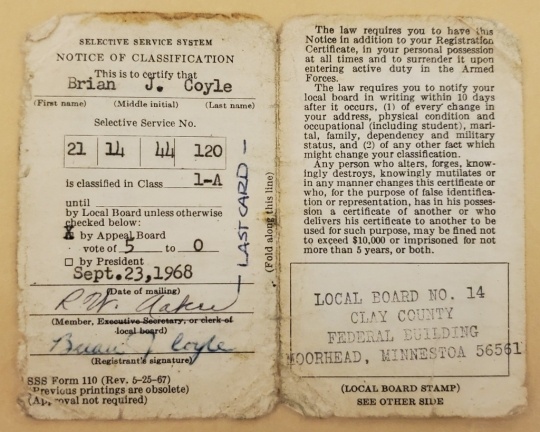 SELECTIVE SERVICE SYSTEM
NOTICE OF CLASSIFICATION
This is to certify that
Brian J. Coyle
(First name) (Middle initial) (Last name)
Selective Service No.
21 14 44 120
is classified in Class 1-A
until
by Local Board unless otherwise
checked below:
X by Appeal Board
vote of 5 to 0
by President
Sept.23,1968
(Date of mailing)
R.W.
(Member, Executive Secretary, or clerk of
local board)
Brian J Coyle
(Registrant's signature)
SSS Form 110 (Rev. 5-25-67)
(Previous printings are obsolete)
(Approval not required)
— LAST CARD —
(Fold along this line)
The law requires you to have this
Notice in addition to your Registration
Certificate, in your personal possession
at all times and to surrender it upon
entering active duty in the Armed
Forces.
The law requires you to notify your
local board in writing within 10 days
after it occurs, (1) of every change in
your address, physical condition and
occupational (including student), mari-
tal, family, dependency and military
status, and (2) of any other fact which
might change your classification.
Any person who alters, forges, know-
ingly destroys, knowingly mutilates or
in any manner changes this certificate or
who, for the purpose of false identifica-
tion or representation, has in his posses-
sion a certificate of another or who
delivers his certificate to another to be
used for such purpose, may be fined not
to exceed $10,000 or imprisoned for not
more than 5 years, or both.
LOCAL BOARD NO. 14
CLAY COUNTY
FEDERAL BUILDING
MOORHEAD, MINNESTOA 56561
(LOCAL BOARD STAMP)
SEE OTHER SIDE